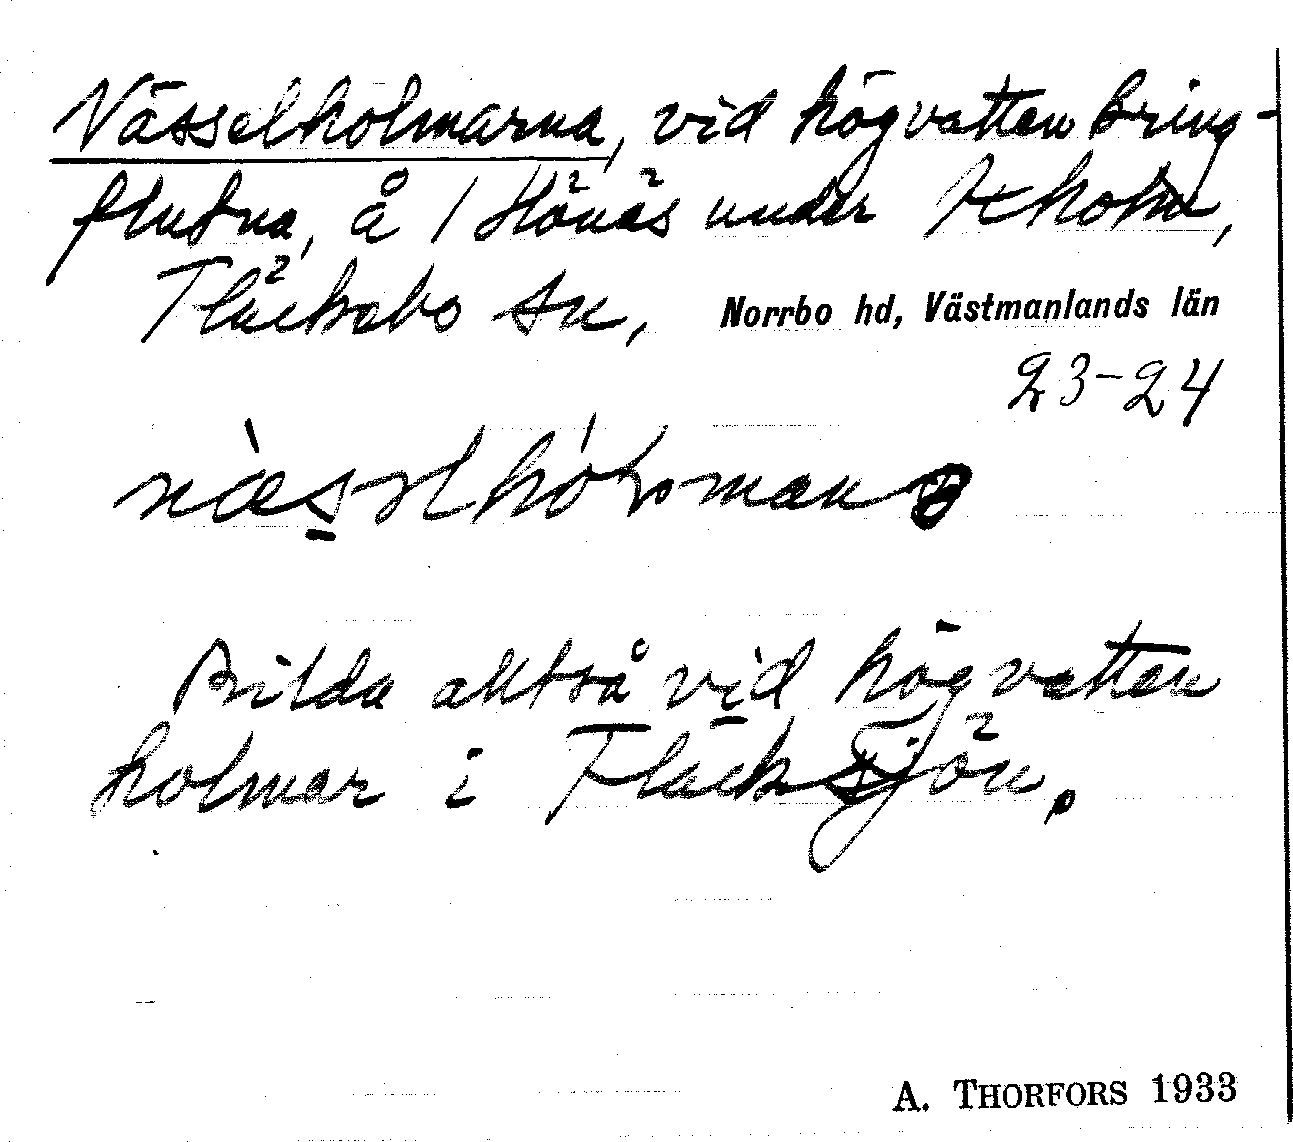 Nässelholmarna, vid högvatten kring-
flutna, å 1 Hönäs under Axholm,
Fläckebo sn, Norrbo hd, Västmanlands län
23-24
Bilda alltså vid högvatten
holmar i Fläcksjön.
A. THORFORS 1933